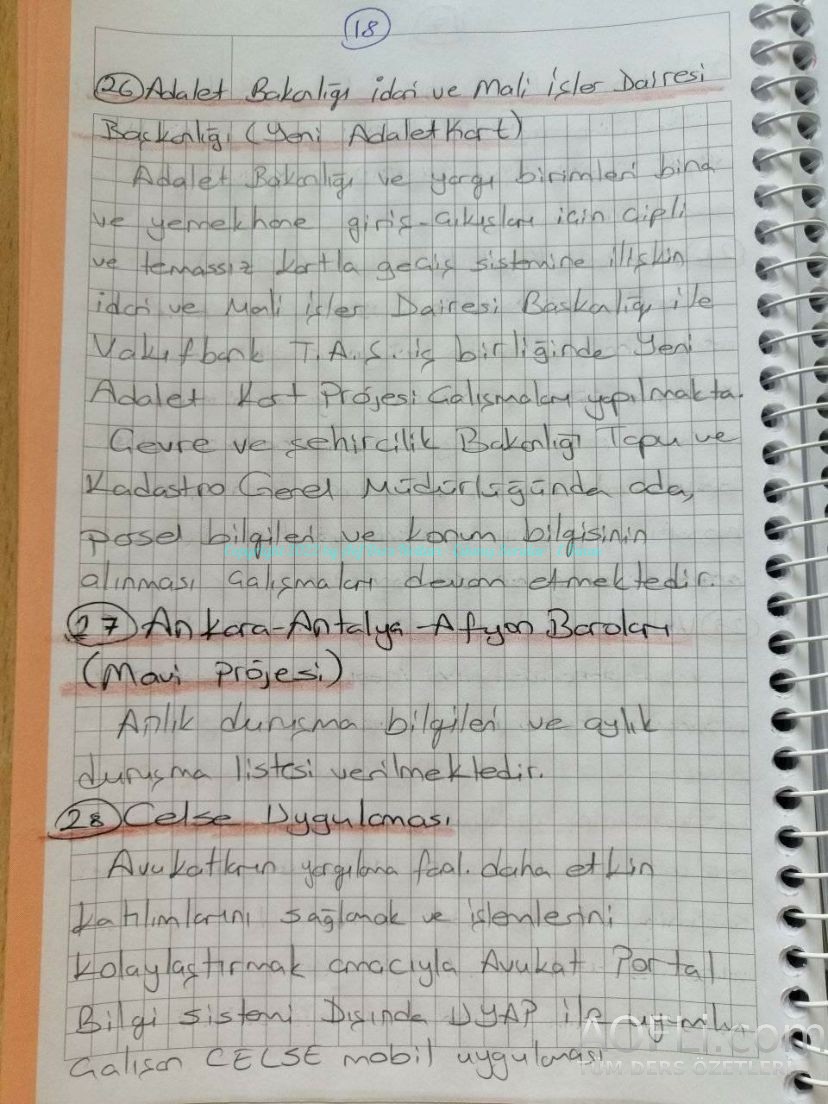 18
26 Adalet Bakanlığı idari ve Mali işler Dairesi
Başkanlığı (Yeni Adalet Kart)
Adalet Bakanlığı ve yargı birimleri bina
ve yemekhane giriş-çıkışları için çipli
ve temassız kartla geçiş sistemine ilişkin
idari ve Mali işler Dairesi Başkanlığı ile
Vakıfbank T.A.Ş. iş birliğinde Yeni
Adalet Kart Projesi Çalışmaları yapılmakta.
Çevre ve şehircilik Bakanlığı Tapu ve
Kadastro Genel Müdürlüğünde ada,
parsel bilgileri ve konum bilgisinin
alınması çalışmaları devam etmektedir.
27 Ankara-Antalya-Afyon Baroları
(Mavi Projesi)
Anlık duruşma bilgileri ve aylık
duruşma listesi verilmektedir.
28 Celse Uygulaması
Avukatların yargılama faal. daha etkin
katılımlarını sağlamak ve işlemlerini
kolaylaştırmak amacıyla Avukat Portal
Bilgi sistemi Dışında UYAP ile uyumlu
Çalışan CELSE mobil uygulaması
TÜM DERS ÖZETLERİ